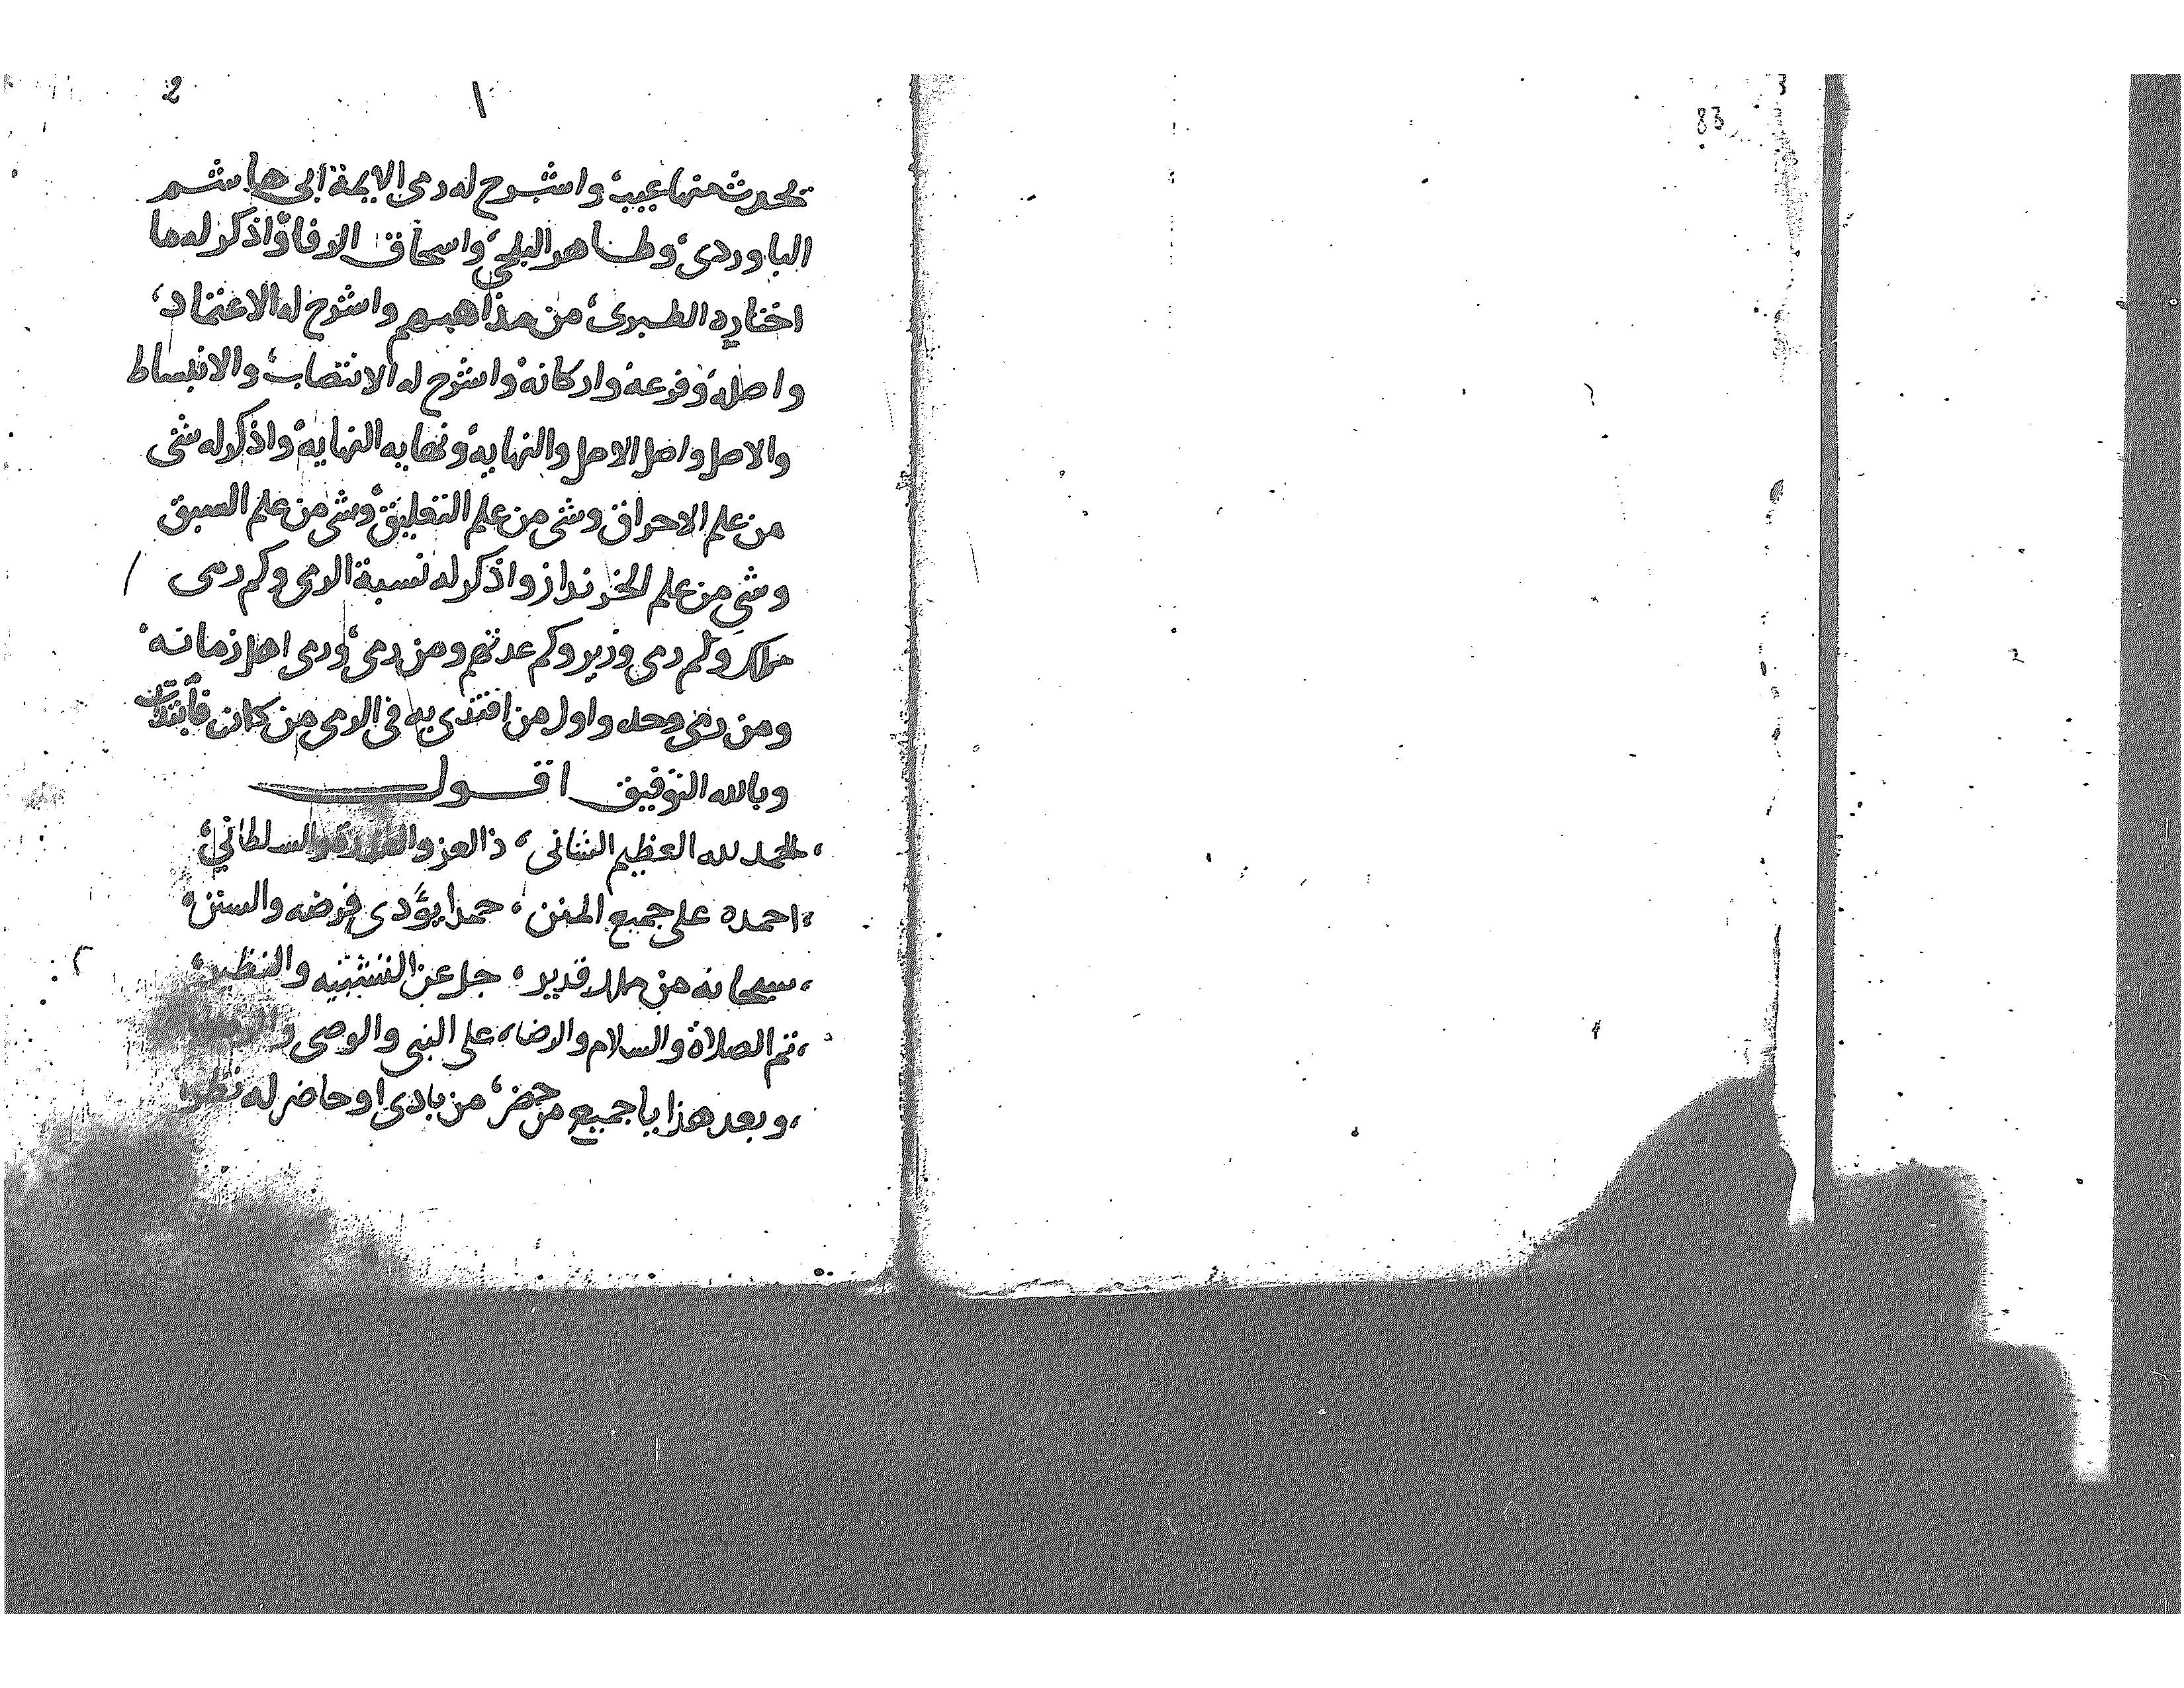 83
2
يحدث منها عيب واشرح له رمى الايمة ابى هاشم
الباوردى وطاهر البلخى واسحاق الرفا واذكر له ما
اختاره الطبرى من مذاهبهم واشرح له الاعتماد
واصله وفرعه واركانه واشرح له الانتصاب والانبساط
والاصل واصل الاصل والنهاية ونهاية النهاية واذكر له شى
من علم الاحراق وشى من علم التعليق وشى من علم السبق
وشى من علم واذكر له نسبة الرمى وكم رمى
ملك وكم رمى وزير وكم عدتهم ومن رمى ورمى اهل زمانه
ومن رمى وحده واول من اقتدى به فى الرمى من كان
وبالله التوفيق اقول
الحمد لله العظيم الشانى ذا العز والقدرة والسلطانى
احمده على جميع المنن حمدا يؤدى فرضه والسنن
سبحانه من ملك قدير جل عن التشبيه والنظير
ثم الصلاة والسلام والرضاء على النبى والوصى
وبعد هذا يا جميع من حضر من بادى او حاضر له نظر